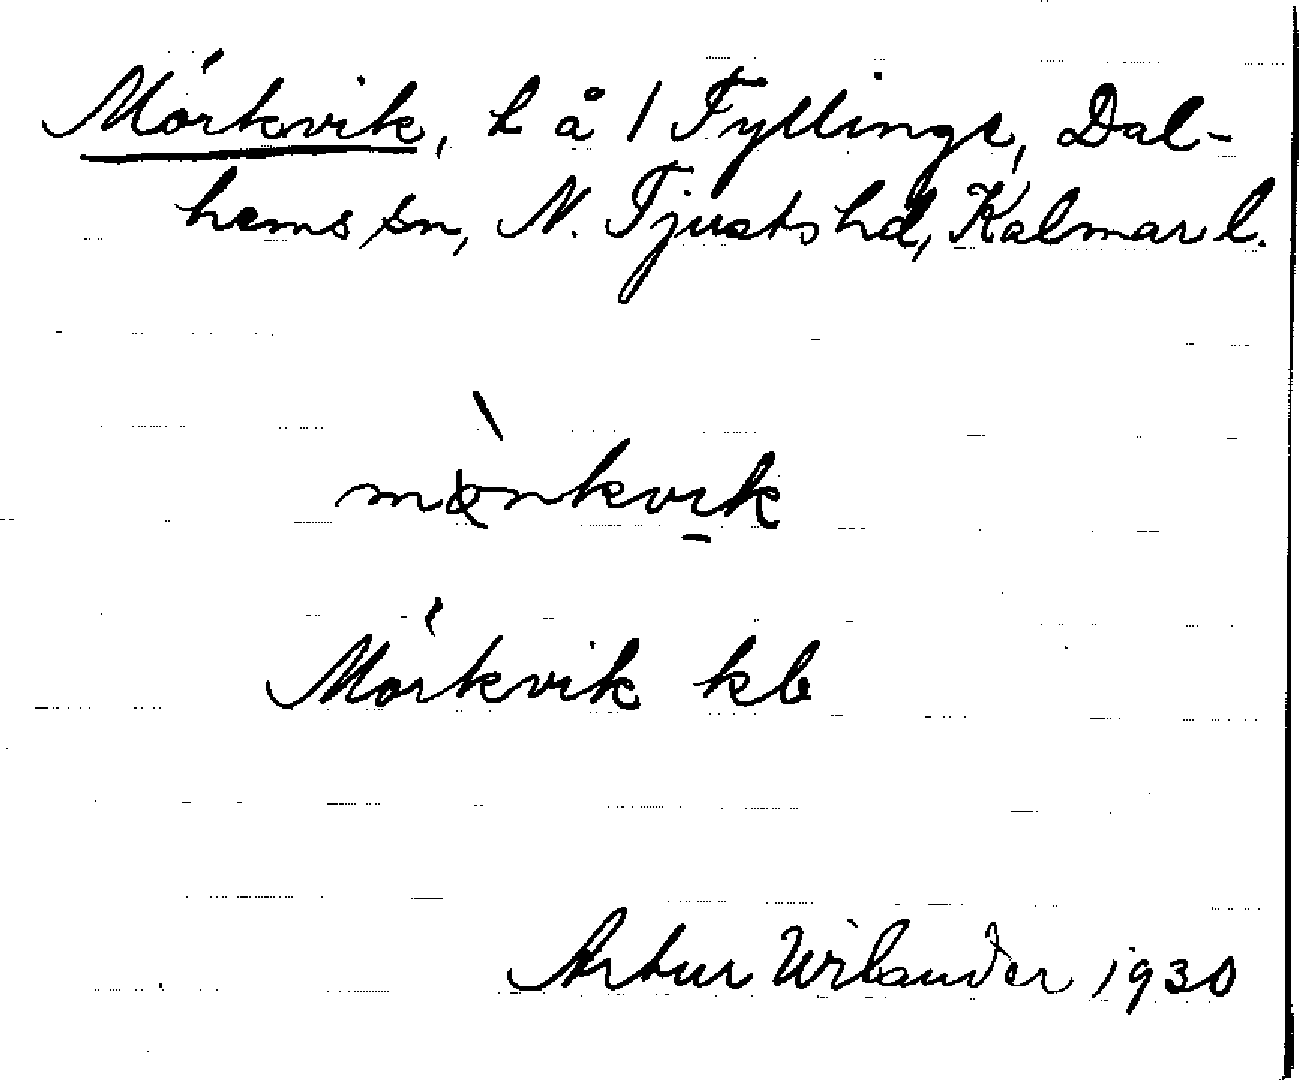 Mörkvik, h å 1 Fyllinge, Dal-
hems sn, N. Tjusts hd, Kalmar l.
Mörkvik kb
Artur Wilander 1930